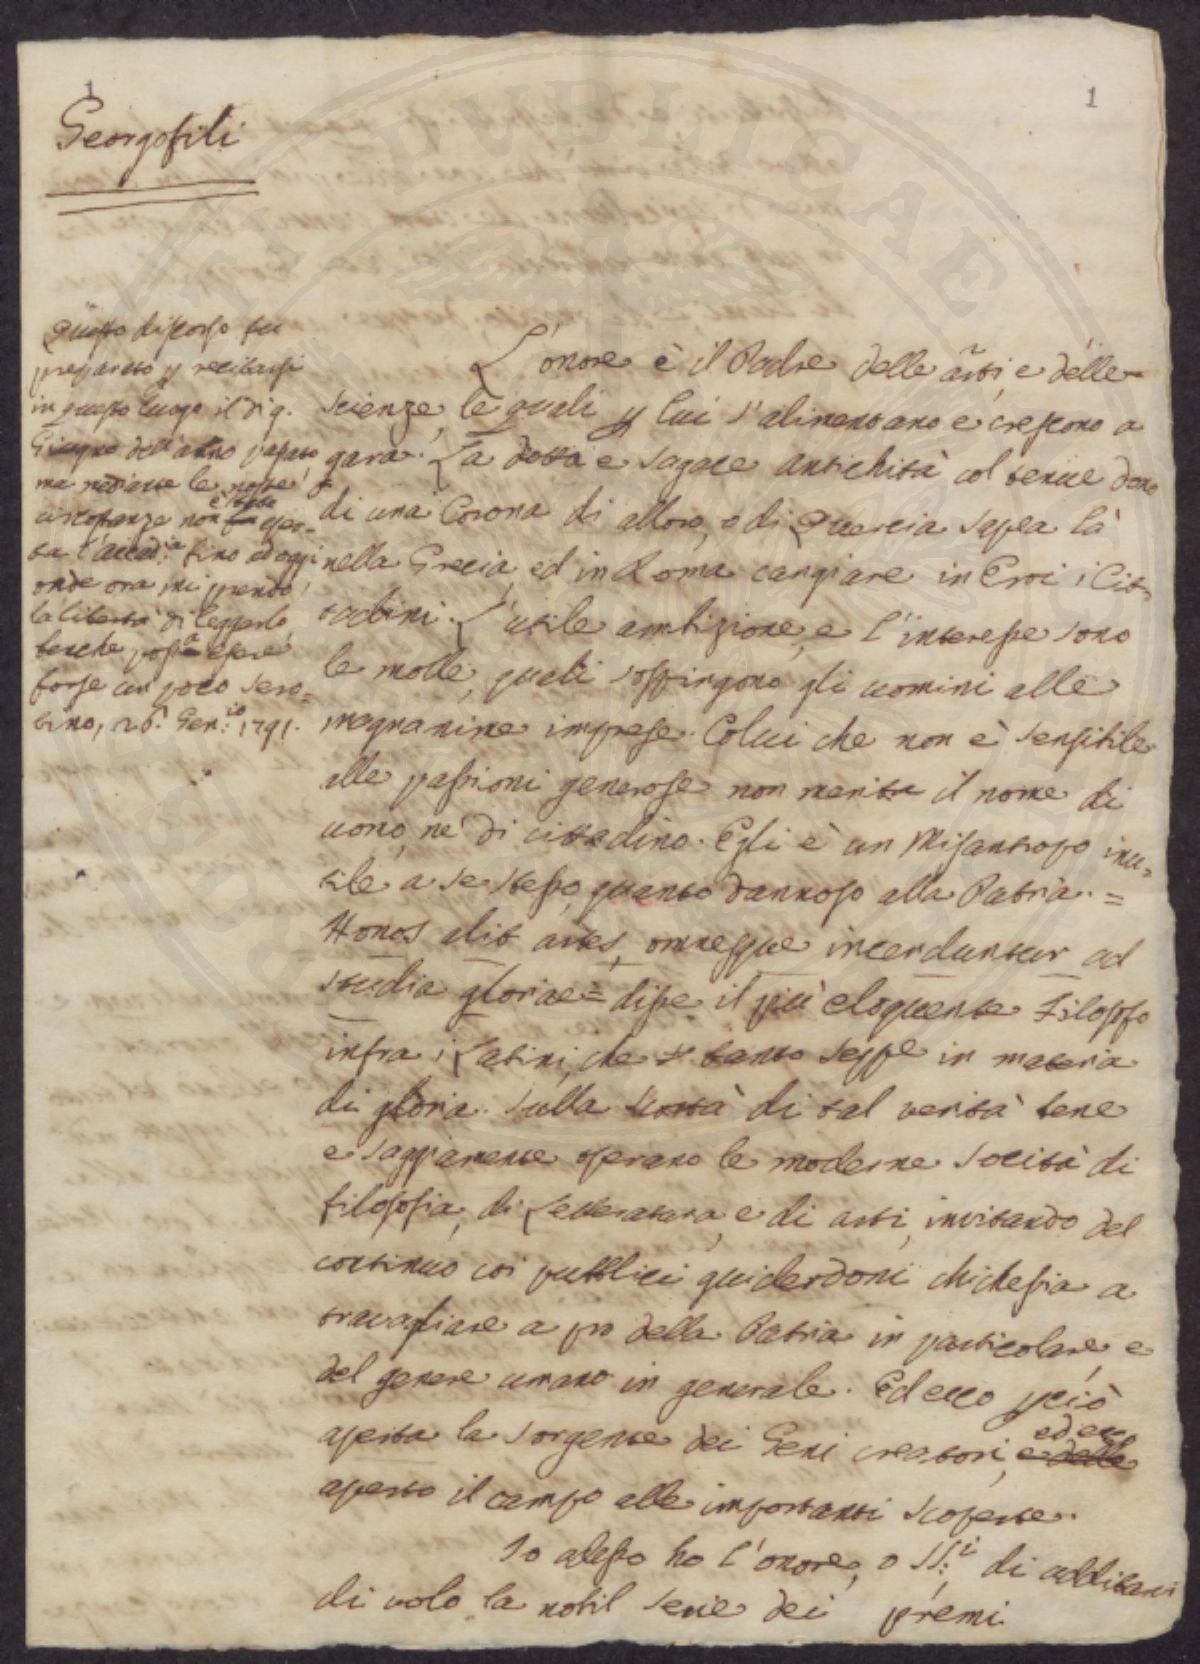 1
1
Georgofili
Questo discorso fu
preparato p recitarsi
in questo luogo il dì 9.
Giugno dell'anno passato,
ma mediante le note
circostanze non è stata aper-
ta l'accad.ia fino ad oggi
onde ora mi prendo
la libertà di leggerlo
benche possa essere
forse un poco sero=
tino, 26. Gen.io 1791.
L'onore è il Padre delle arti, e delle
scienze, le quali p lui s'alimentano e crescono a
gara. La dotta e sagace antichità col tenue dono
di una Corona di alloro, o di Quercia sapea là
nella Grecia ed in Roma cangiare in Eroi i Cit=
tadini. L'utile ambizione, e l'interesse sono
le molle, quali sospingono gli uomini alle
magnanime imprese. Colui che non è sensibile
alle passioni generose non merita il nome di
uomo, nè di cittadino. Egli è un Misantropo inu=
tile a se stesso, quanto dannoso alla Patria. =
Honos alit artes, omnesque incenduntur ad
studia gloriae = disse il più eloquente Filosofo
infra i Latini, che tanto seppe in materia
di gloria. Sulla scorta di tal verità bene
e saggiamente operano le moderne società di
filosofia, di Letteratura, e di arti, invitando del
continuo coi pubblici guiderdoni chichesia a
travagliare a pro della Patria in particolare, e
del genere umano in generale. Ed ecco pciò
aperta la sorgente dei Geni creatori, e delle ed ecco
aperto il campo alle importanti scoperte.
Io adesso ho l'onore, o SS.i di additarvi
di volo la nobil serie dei premi